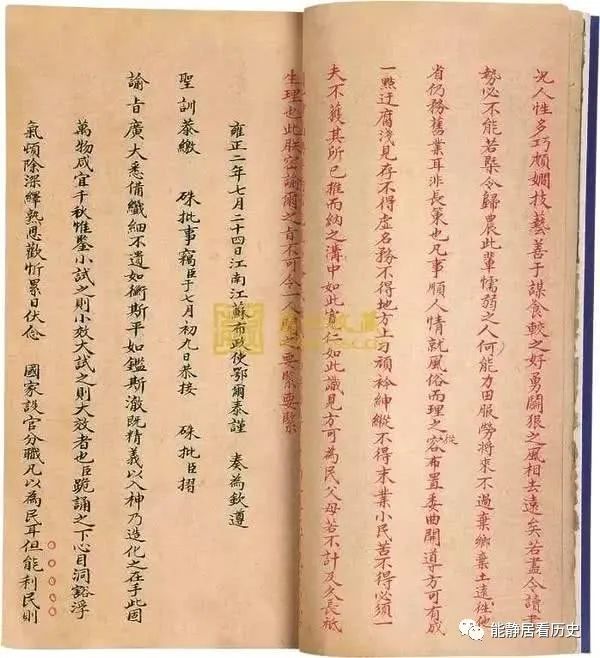 况人性多巧頗嫺技藝善于謀食較之好勇鬬狠之風相去遠矣若盡令讀書
勢必不能若槩令歸農此輩懦弱之人何能力田服勞將來不過棄鄉棄土遠徃他
省仍務舊業耳非長策也凡事順人情就風俗而理之從容布置委曲開導方可有成
一點迂腐淺見存不得虛名務不得地方上刁頑衿紳縱不得末業小民苦不得必須一
夫不獲其所己推而納之溝中如此寬仁如此識見方可為民父母若不計及久長祇
生理也此朕密諭爾之旨不可令一人聞之要緊要緊
雍正二年七月二十四日江南江蘇布政使鄂爾泰謹 奏為欽遵
聖訓恭繳 硃批事竊臣于七月初九日恭接 硃批臣摺
諭旨廣大悉備纖細不遺如衡斯平如鑑斯澈既精義以入神乃造化之在手此固
萬物咸宜千秋惟鑒小試之則小效大試之則大效者也臣跪誦之下心目洞豁浮
氣頓除深繹熟思歡忻累日伏念 國家設官分職凡以為民耳但能利民則
能静居看历史